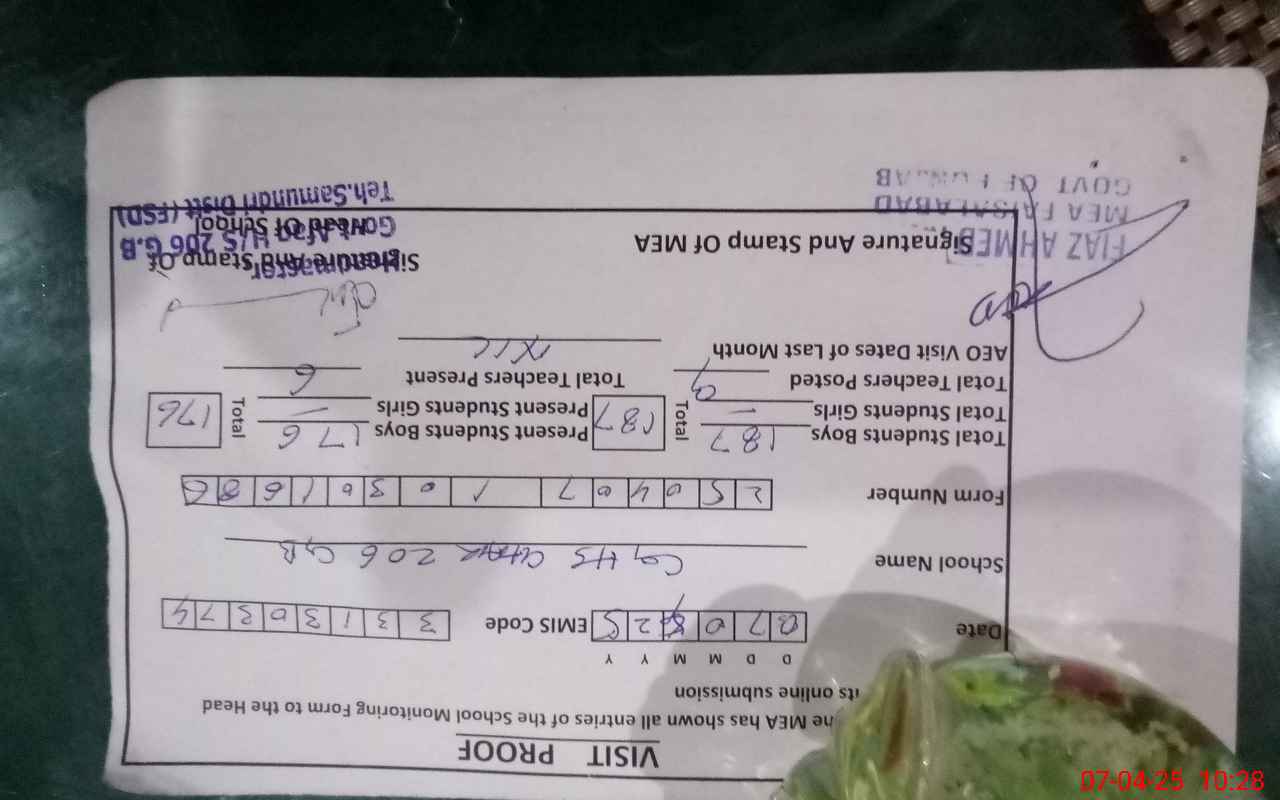 VISIT PROOF
he MEA has shown all entries of the School Monitoring Form to the Head
its online submission
D D M M Y Y
Date 0 7 0 4 2 5 EMIS Code 3 3 1 3 0 3 7 4
School Name GHS CHAK 206 GB
Form Number 2 5 0 4 0 7 1 0 3 0 1 6 8 6
Total Students Boys 187 Total 187 Present Students Boys 176 Total 176
Total Students Girls — Present Students Girls —
Total Teachers Posted 9 Total Teachers Present 6
AEO Visit Dates of Last Month
Signature And Stamp Of MEA Signature And Stamp Of
Head Of School
FIAZ AHMED
MEA FAISALABAD
GOVT OF PUNJAB
Headmaster
H/S 206 G.B
Teh.Samundri Distt (FSD)
07-04-25 10:28